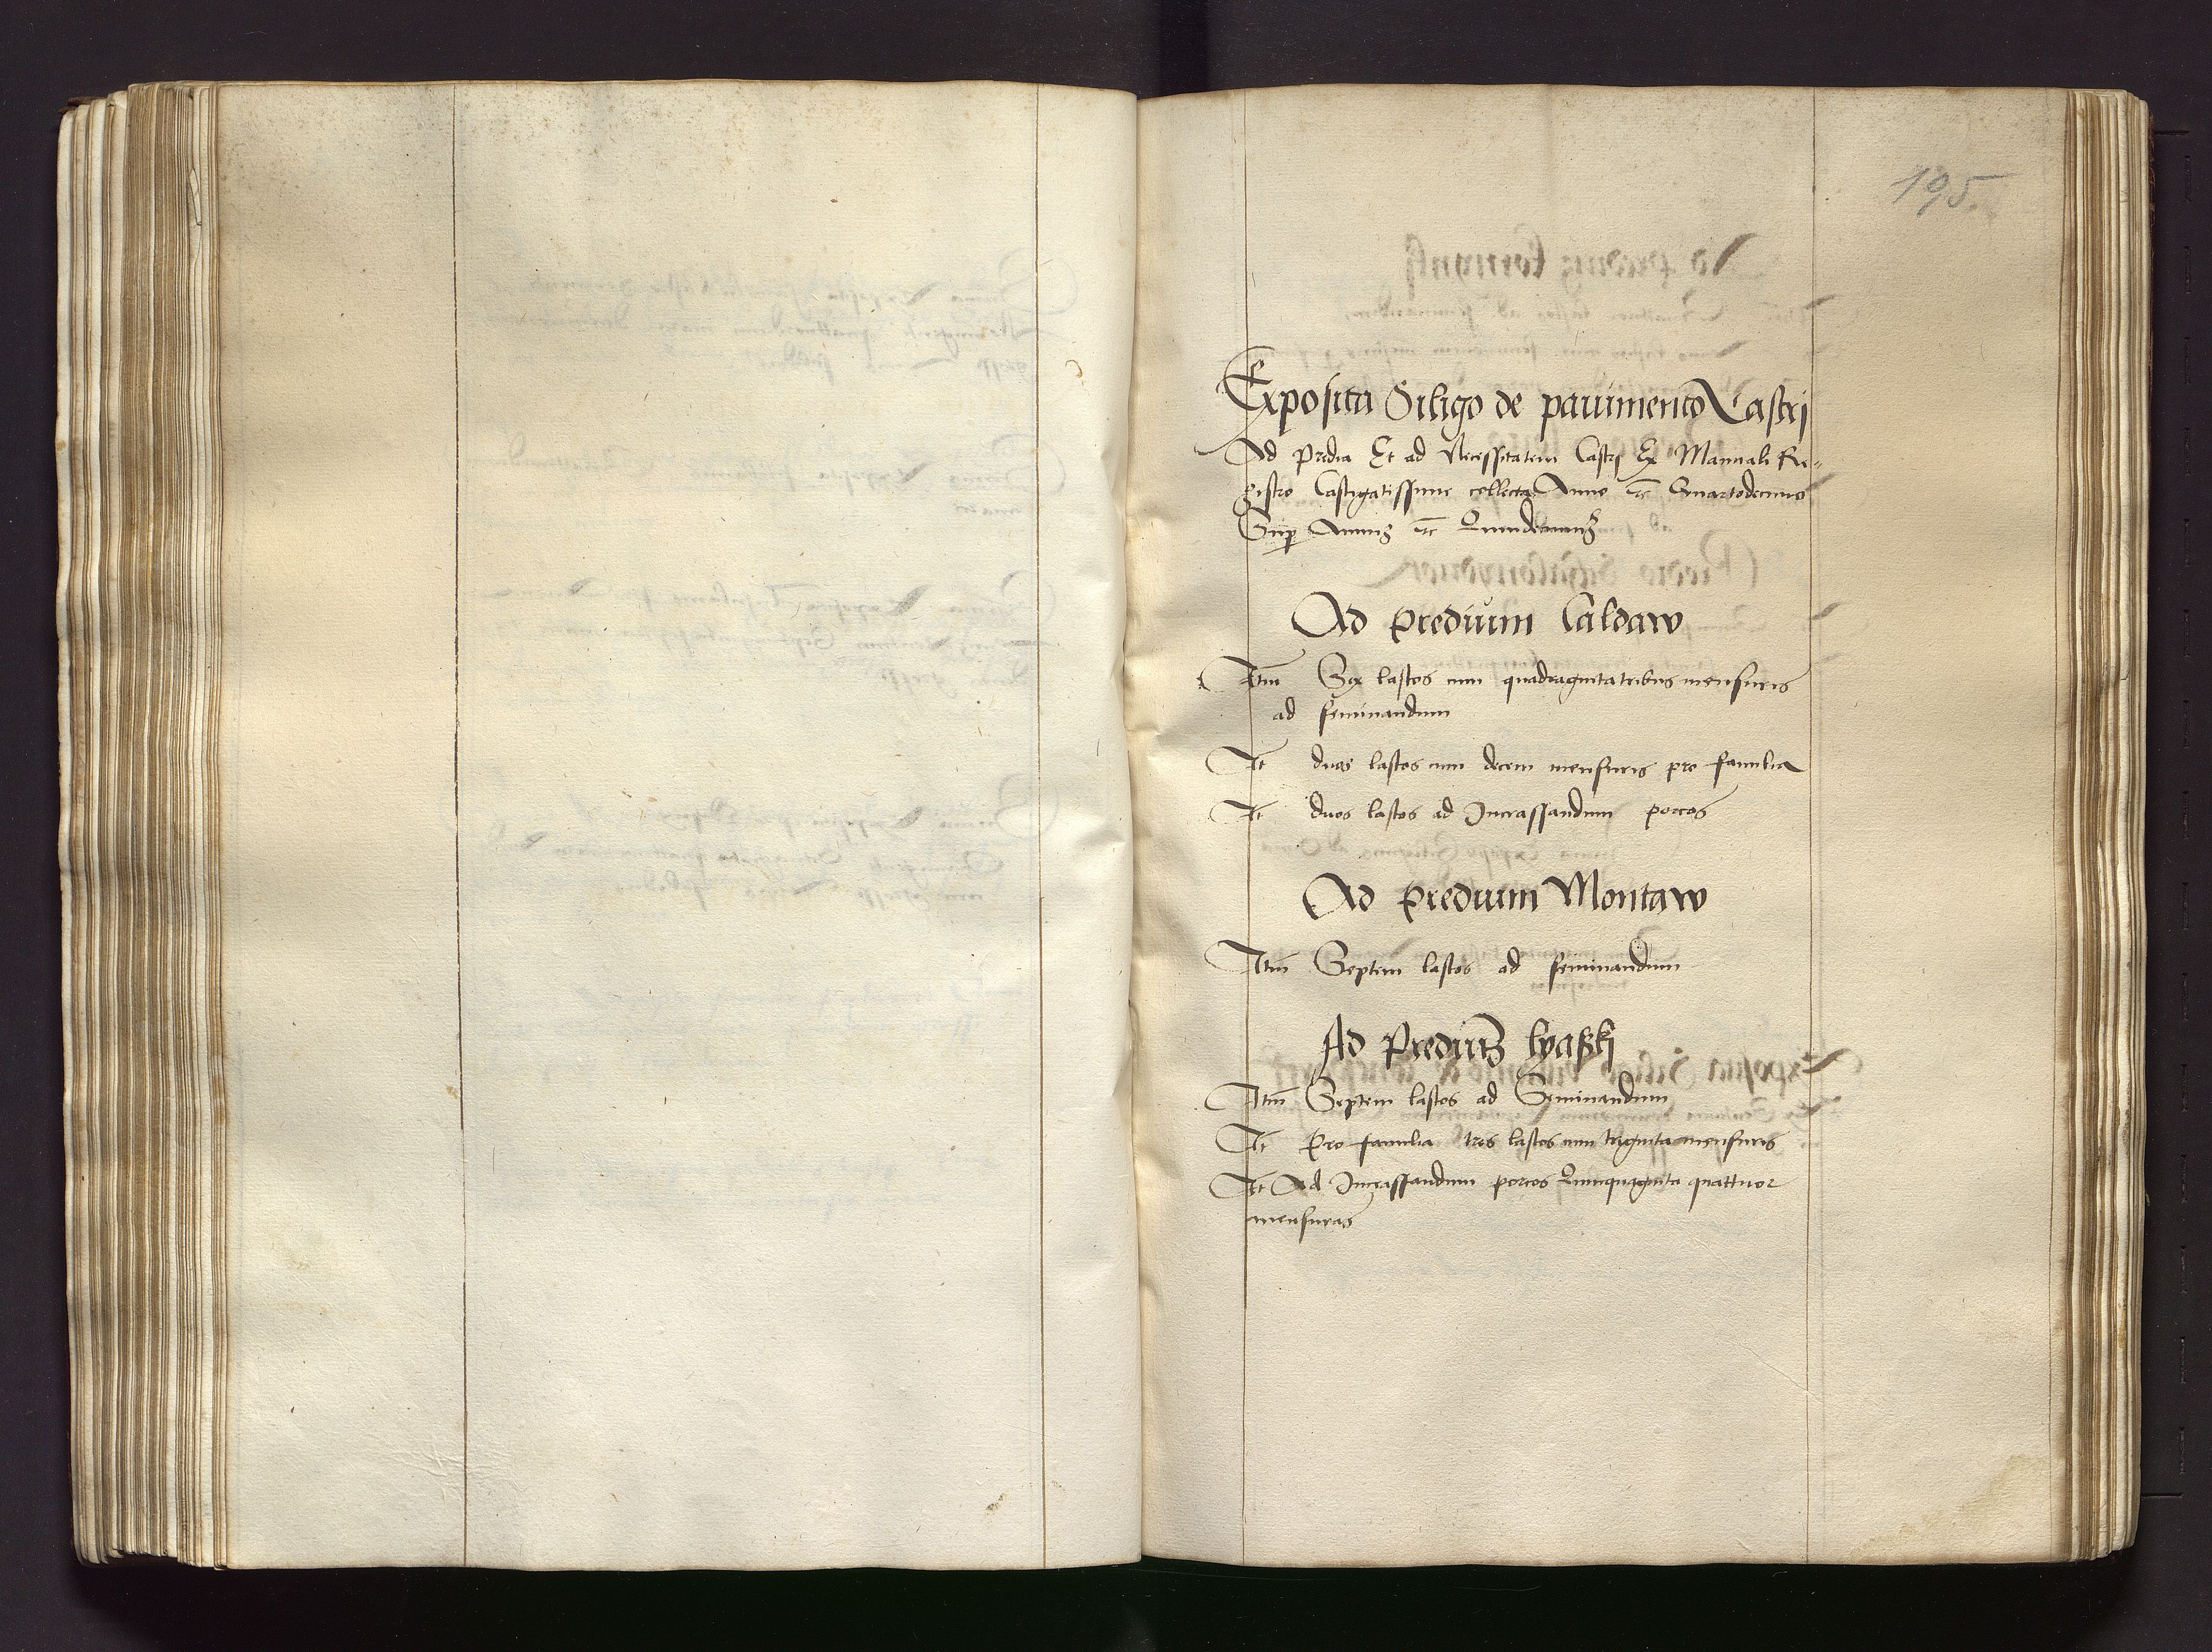 195.
Exposita Siligo de pavimento Castri
Ad Predia Et ad Necessitatem Castri Ex Manuali Re-
gistro Castigatissime collecta Anno etc Quartodecimo
Sup Annuʒ etc Quindecimuʒ
Ad Predium Caldaw
Itm Sex lastos cum quadraginta tribus mensuris
ad seminandum
It duos lastos cum decem mensuris pro familia
It duos lastos ad Incrassandum porcos
Ad Predium Montaw
Itm Septem lastos ad seminandum
Ad Prediuʒ lyaski
Itm Septem lastos ad Seminandum
It Pro familia tres lastos cum triginta mensuris
It Ad Incrassandum porcos Quinquaginta quattuor
mensuras